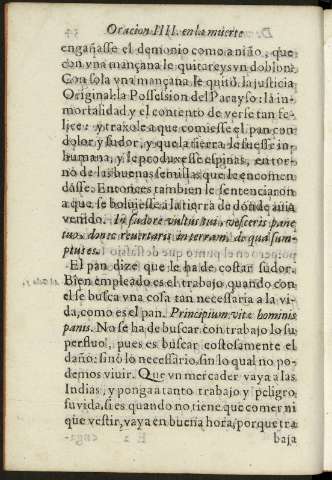 Oracion IIII. en la muerte
engañasse el demonio como a niño, que
con vna mançana le quitareys vn doblon:
Con sola vna mançana le quitò la justicia
Original: la Possession del Parayso: la in-
mortalidad y el contento de verse tan fe-
lice: y traxole a que comiesse el pan con
dolor y sudor, y que la tierra le fuesse in-
humana, y le produxesse espinas, en tor-
no de las buenas semillas que le encomen
dasse. Entonces tambien le sentenciaron
a que se boluiesse a la tierra de donde auia
venido. In sudore vultus tui, vesceris pane
tuo, donec reuertaris in terram, de qua sum-
ptus es.
El pan dize que le ha de costar sudor.
Bien empleado es el trabajo, quando con
el se busca vna cosa tan necessaria a la vi-
da, como es el pan. Principium vitæ hominis
panis. No se ha de buscar con trabajo lo su
perfluo, pues es buscar costosamente el
daño: sino lo necessario, sin lo qual no po-
demos viuir. Que vn mercader vaya a las
Indias, y ponga a tanto trabajo y peligro
su vida, si es quando no tiene que comer ni
que vestir, vaya en buena hora, porque tra
baja